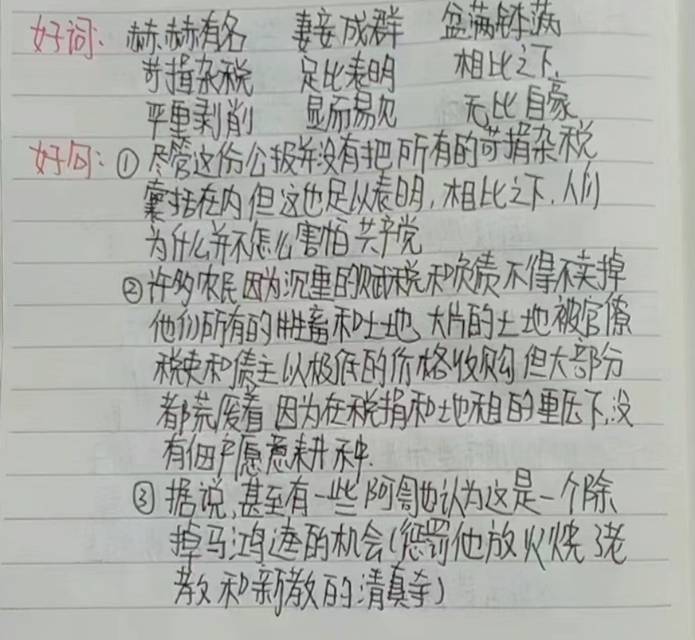 好词: 赫赫有名 妻妾成群 盆满钵满
苛捐杂税 足比表明 相比之下
严重剥削 显而易见 无比自豪
好句: ①尽管这份公报并没有把所有的苛捐杂税
囊括在内但这也足以表明,相比之下,人们
为什么并不怎么害怕共产党
②许多农民因为沉重的赋税和欠债不得不卖掉
他们所有的牲畜和土地,大片的土地被官僚
税吏和债主以极低的价格收购但大部分
都荒废着 因为在税捐和地租的重压下,没
有佃户愿意耕种.
③据说,甚至有一些阿訇也认为这是一个除
掉马鸿逵的机会(惩罚他放火烧了老
教和新教的清真寺)